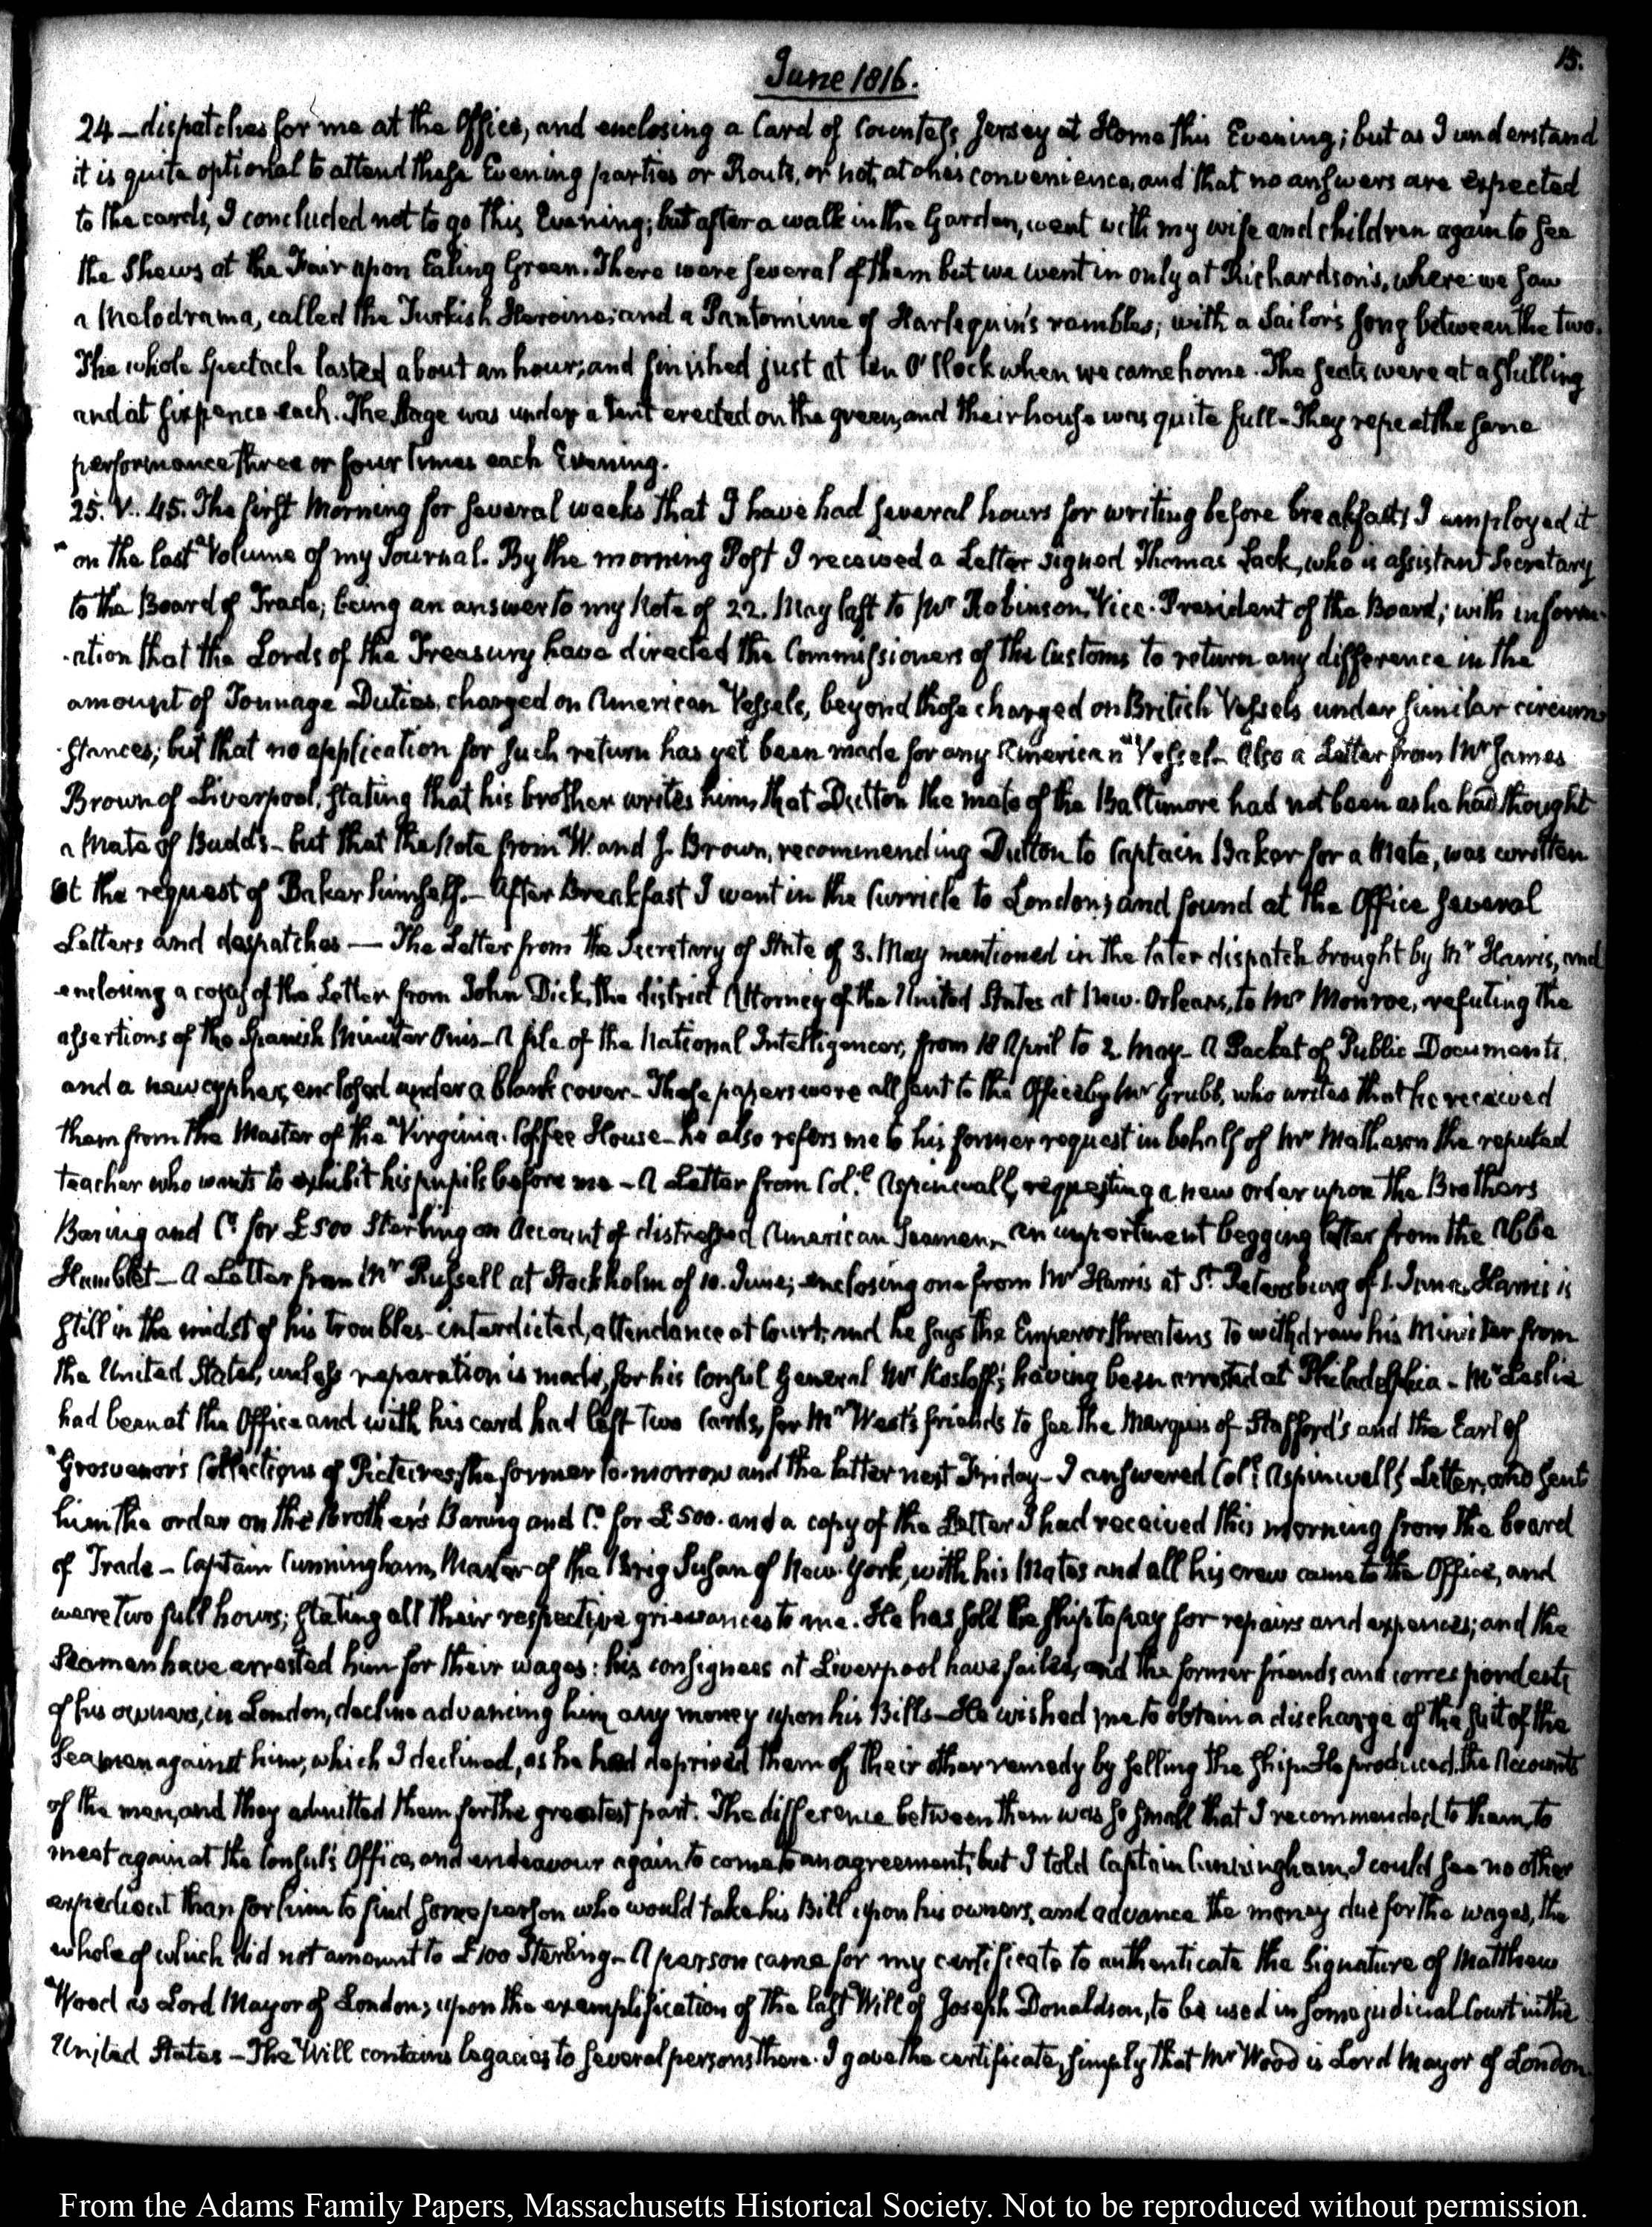 June 1816.
15.
24 — dispatches for me at the Office, and enclosing a Card of Countess Jersey at Home this Evening; but as I understand
it is quite optional to attend these Evening parties or Routs, or not, at ones convenience, and that no answers are expected
to the cards, I concluded not to go this Evening; but after a walk in the Garden, went with my wife and children again to see
the Shews at the Fair upon Ealing Green. There were several of them but we went in only at Richardson's, where we saw
a Melodrama, called the Turkish Heroine; and a Pantomime of Harlequin's rambles; with a Sailor's song between the two.
The whole Spectacle lasted about an hour; and finished just at ten O'Clock when we came home. The seats were at a shilling
and at sixpence each. The stage was under a tent erected on the green, and their house was quite full - They repeat the same
performance three or four times each Evening.
25. V. 45. The first Morning for several weeks that I have had several hours for writing before breakfast; I employed it
on the last Volume of my Journal. By the morning Post I received a Letter signed Thomas Lack, who is assistant Secretary
to the Board of Trade; being an answer to my Note of 22. May last to Mr Robinson, Vice-President of the Board; with inform-
-ation that the Lords of the Treasury have directed the Commissioners of the Customs to return any difference in the
amount of Tonnage Duties, charged on American Vessels, beyond those charged on British Vessels under similar circum-
-stances; but that no application for such return has yet been made for any American Vessel - Also a Letter from Mr James
Brown of Liverpool, stating that his brother writes him, that Dutton the mate of the Baltimore had not been as he had thought
a Mate of Budd's - but that the Note from W. and J. Brown, recommending Dutton to Captain Baker for a Mate, was written
at the request of Baker himself. - After Breakfast I went in the Curricle to London; and found at the Office several
Letters and despatches — The Letter from the Secretary of State of 3. May mentioned in the later dispatch brought by Mr Harris, and
enclosing a copy of the Letter from John Dick, the district Attorney of the United States at New-Orleans, to Mr Monroe, refuting the
assertions of the Spanish Minister Onis - A file of the National Intelligencer, from 18 April to 2. May - A Packet of Public Documents,
and a new cypher, enclosed under a blank cover - These papers were all sent to the Office by Mr Grubb, who writes that he received
them from the Master of the Virginia Coffee House - he also refers me to his former request in behalf of Mr Matheson the reputed
teacher who wants to exhibit his pupils before me - A Letter from Coll. Aspinwall, requesting a new order upon the Brothers
Baring and Co for £500 Sterling on Account of distressed American Seamen, - an impertinent begging letter from the Abbe
Hamblet - A Letter from Mr Russell at Stockholm of 10. June; enclosing one from Mr Harris at St Petersburg of 1. June. Harris is
still in the midst of his troubles - interdicted, attendance at Court; and he says the Emperor threatens to withdraw his Minister from
the United States, unless reparation is made, for his Consul General Mr Kosloff's having been arrested at Philadelphia - Mr Leslie
had been at the Office and with his card had left two Cards, for Mr West's friends to see the Marquis of Stafford's and the Earl of
Grosvenor's Collections of Pictures; the former to-morrow and the latter next Friday - I answered Coll. Aspinwall's Letter, and sent
him the order on the Brothers Baring and Co for £500. and a copy of the Letter I had received this morning from the board
of Trade - Captain Cunningham, Master of the Brig Susan of New-York, with his Mates and all his crew came to the Office, and
were two full hours; stating all their respective grievances to me. He has sold the ship to pay for repairs and expences; and the
Seamen have arrested him for their wages: his consignees at Liverpool have failed, and the former friends and correspondents
of his owners, in London, decline advancing him any money upon his Bills - He wished me to obtain a discharge of the suit of the
Seamen against him, which I declined, as he had deprived them of their other remedy by selling the ship. He produced the Accounts
of the men, and they admitted them for the greatest part. The difference between them was so small that I recommended to them, to
meet again at the Consul's Office, and endeavour again to come to an agreement; but I told Captain Cunningham, I could see no other
expedient than for him to find some person who would take his Bill upon his owners, and advance the money due for the wages, the
whole of which did not amount to £100 Sterling - A person came for my certificate to authenticate the Signature of Matthew
Wood as Lord Mayor of London; upon the exemplification of the last Will of Joseph Donaldson, to be used in some judicial Court in the
United States - The Will contains legacies to several persons there. I gave the certificate, simply that Mr Wood is Lord Mayor of London.
From the Adams Family Papers, Massachusetts Historical Society. Not to be reproduced without permission.